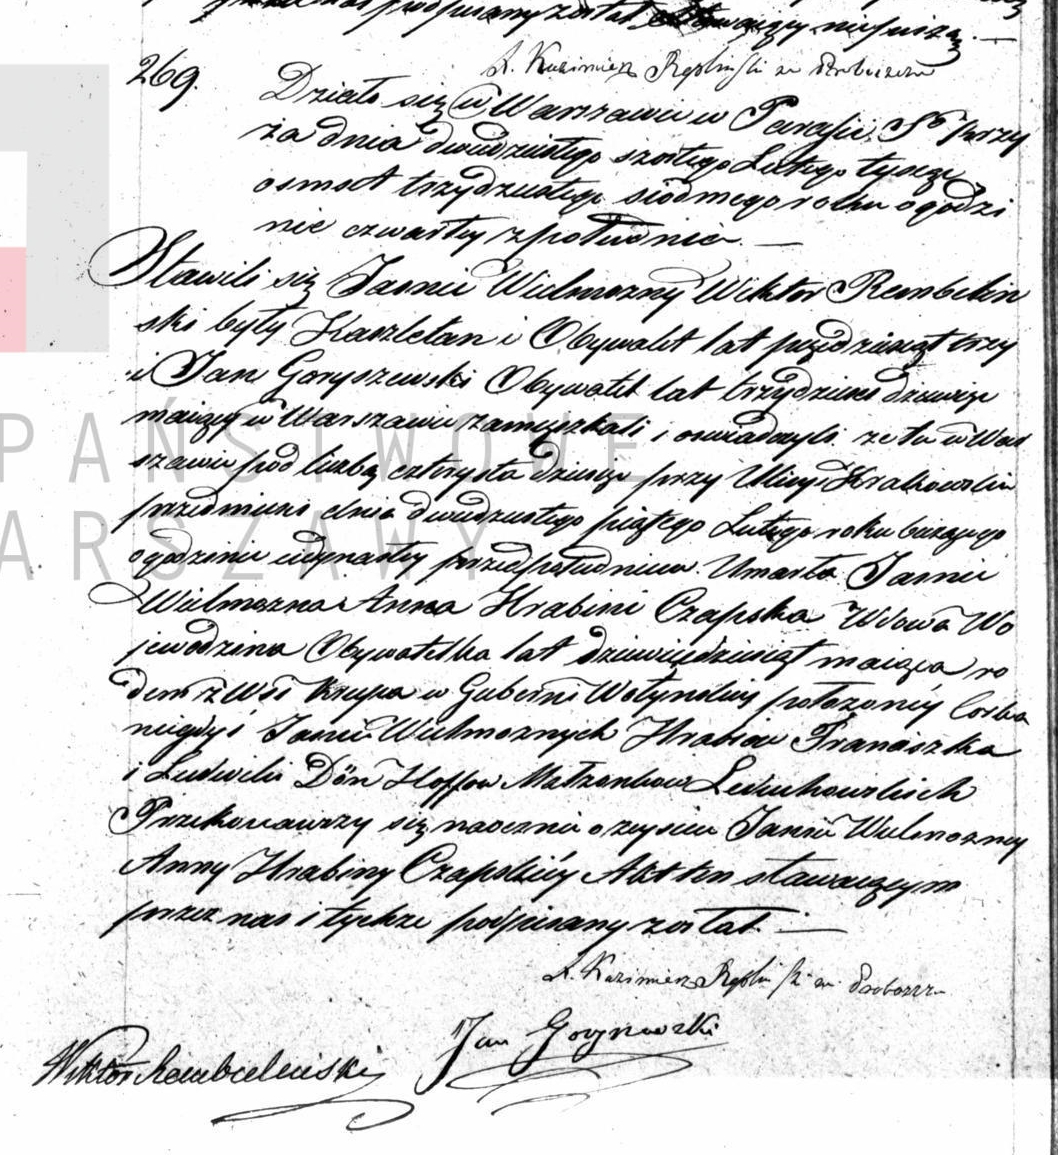 podpisany został stawaiący nieumieią. —
X. Kazimierz Rębliński za Proboszcza
269.
Działo się w Warszawie w Parafii S° Krzy
ża dnia dwudziestego szóstego Lutego tysiąc
osmset trzydziestego siódmego roku o godzi
nie czwartey z południa. —
Stawili się Jaśnie Wielmożny Wiktor Rembeliń
ski były Kasztelan i Obywatel lat pięćdziesiąt trzy
i Jan Goryszewski Obywatel lat trzydzieści dziewięć
maiący w Warszawie zamieszkali i oświadczyli że tu w War
szawie pod liczbą czterysta dziesięć przy Ulicy Krakowskie
przedmieście dnia dwudziestego piątego Lutego roku bieżącego
o godzinie iedynastey przedpołudniem. Umarła Jaśnie
Wielmożna Anna Hrabini Czapska Wdowa Wo
jewodzina Obywatelka lat dziewięćdziesiąt maiąca ro
dem z Wsi Krupa w Guberni Wołyńskiey położoney Córka
niegdyś Jaśnie Wielmożnych Hrabiów Franciszka
i Ludwiki Dön Hoffów Małżonków Leduchowskich
Przekonawszy się naocznie o zeyściu Jaśnie Wielmożney
Anny Hrabiny Czapskiéy Akt ten stawaiącym
przez nas i tychże podpisany został. —
X. Kazimierz Rębliński za Proboszcza
Jan Goryszewski
Wiktor Rembieliński
PAŃSTWOWE
WARSZAWY